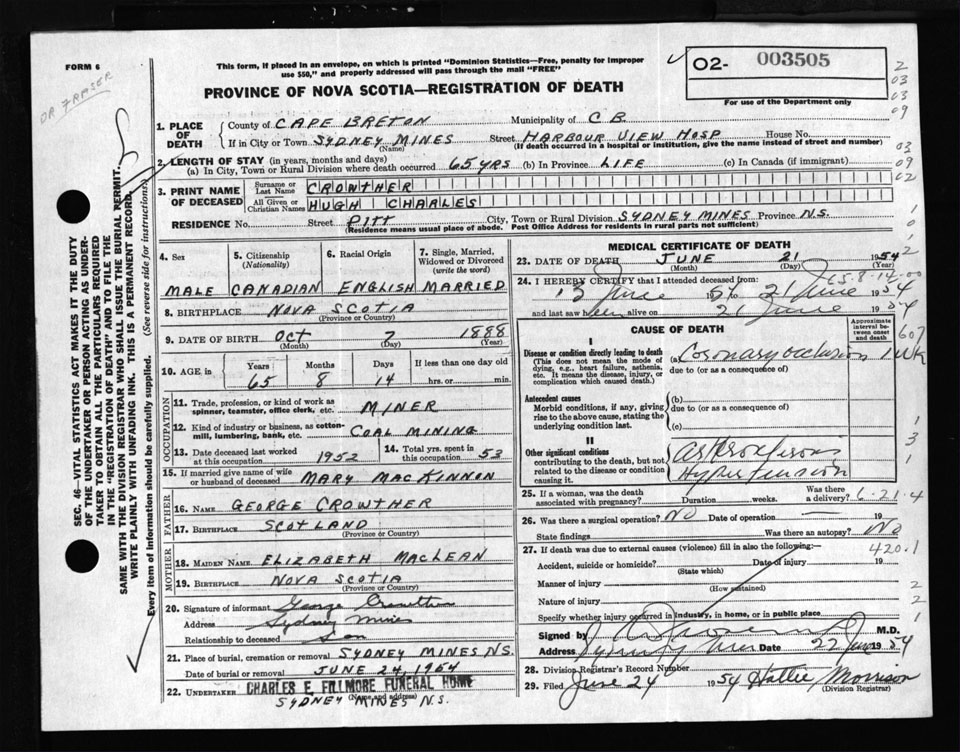 FORM 6
This form, if placed in an envelope, on which is printed "Dominion Statistics—Free, penalty for improper
use $50," and properly addressed will pass through the mail "FREE"
02- 003505
For use of the Department only
PROVINCE OF NOVA SCOTIA—REGISTRATION OF DEATH
OR FRASER
SEC. 46—VITAL STATISTICS ACT MAKES IT THE DUTY
OF THE UNDERTAKER OR PERSON ACTING AS UNDER-
TAKER TO OBTAIN ALL THE PARTICULARS REQUIRED
IN THE "REGISTRATION OF DEATH" AND TO FILE THE
SAME WITH THE DIVISION REGISTRAR WHO SHALL ISSUE THE BURIAL PERMIT.
WRITE PLAINLY WITH UNFADING INK. THIS IS A PERMANENT RECORD.
Every item of information should be carefully supplied. (See reverse side for instructions)
1. PLACE OF DEATH
County of CAPE BRETON Municipality of C B
If in City or Town SYDNEY MINES Street HARBOUR VIEW HOSP House No.
(Name) (If death occurred in a hospital or institution, give the name instead of street and number)
2. LENGTH OF STAY (in years, months and days)
(a) In City, Town or Rural Division where death occurred 65 YRS (b) In Province LIFE (c) In Canada (if immigrant)
3. PRINT NAME OF DECEASED
Surname or Last Name CROWTHER
All Given or Christian Names HUGH CHARLES
RESIDENCE No. Street PITT City, Town or Rural Division SYDNEY MINES Province N.S.
(Residence means usual place of abode. Post Office Address for residents in rural parts not sufficient)
4. Sex 5. Citizenship (Nationality) 6. Racial Origin 7. Single, Married, Widowed or Divorced (write the word)
MALE CANADIAN ENGLISH MARRIED
8. BIRTHPLACE NOVA SCOTIA
(Province or Country)
9. DATE OF BIRTH OCT 7 1888
(Month) (Day) (Year)
10. AGE in Years Months Days If less than one day old
65 8 14 hrs. or min.
OCCUPATION
11. Trade, profession, or kind of work as
spinner, teamster, office clerk, etc. MINER
12. Kind of industry or business, as cotton-
mill, lumbering, bank, etc. COAL MINING
13. Date deceased last worked at this occupation 1952 14. Total yrs. spent in this occupation 53
15. If married give name of wife
or husband of deceased MARY MACKINNON
FATHER
16. Name GEORGE CROWTHER
17. Birthplace SCOTLAND
(Province or Country)
MOTHER
18. Maiden Name ELIZABETH MACLEAN
19. Birthplace NOVA SCOTIA
(Province or Country)
20. Signature of informant George Crowther
Address Sydney Mines
Relationship to deceased Son
21. Place of burial, cremation or removal SYDNEY MINES N.S.
Date of burial or removal JUNE 24, 1954
22. UNDERTAKER CHARLES E. FILLMORE FUNERAL HOME
(Name and address)
SYDNEY MINES N.S.
MEDICAL CERTIFICATE OF DEATH
23. DATE OF DEATH JUNE 21 1954
(Month) (Day) (Year)
65-8-14-00
24. I HEREBY CERTIFY that I attended deceased from:
13 June 1954 to 21 June 1954
and last saw him alive on 21 June 1954
CAUSE OF DEATH
Approximate interval between onset and death
I
Disease or condition directly leading to death
(This does not mean the mode of
dying, e.g., heart failure, asthenia,
etc. It means the disease, injury, or
complication which caused death.)
(a) Coronary occlusion 1 WK
due to (or as a consequence of)
Antecedent causes
Morbid conditions, if any, giving
rise to the above cause, stating the
underlying condition last.
(b)
due to (or as a consequence of)
(c)
II
Other significant conditions
contributing to the death, but not
related to the disease or condition
causing it.
Hypertension
25. If a woman, was the death
associated with pregnancy? Duration weeks. Was there a delivery? 6-21-4
26. Was there a surgical operation? NO Date of operation 19
State findings Was there an autopsy? No
27. If death was due to external causes (violence) fill in also the following:— 420.1
Accident, suicide or homicide? Date of injury 19
(State which)
Manner of injury
(How sustained)
Nature of injury
Specify whether injury occurred in industry, in home, or in public place
Signed by M.D.
Address Sydney Mines Date 22 June 1954
28. Division Registrar's Record Number
29. Filed June 24 1954 Hattie Morrison
(Division Registrar)